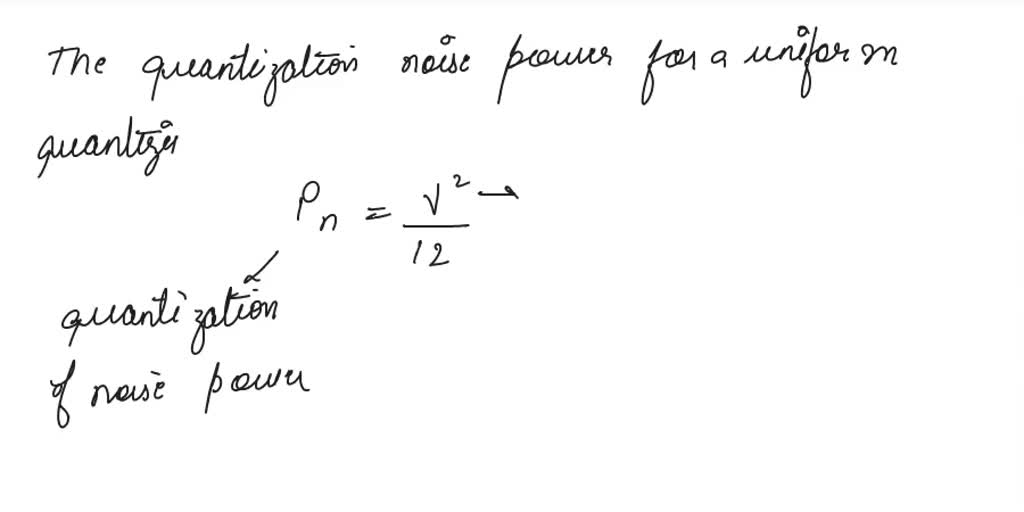 The quantization noise power for a uniform
quantizer
Pn = V² →
12
quantization
of noise power